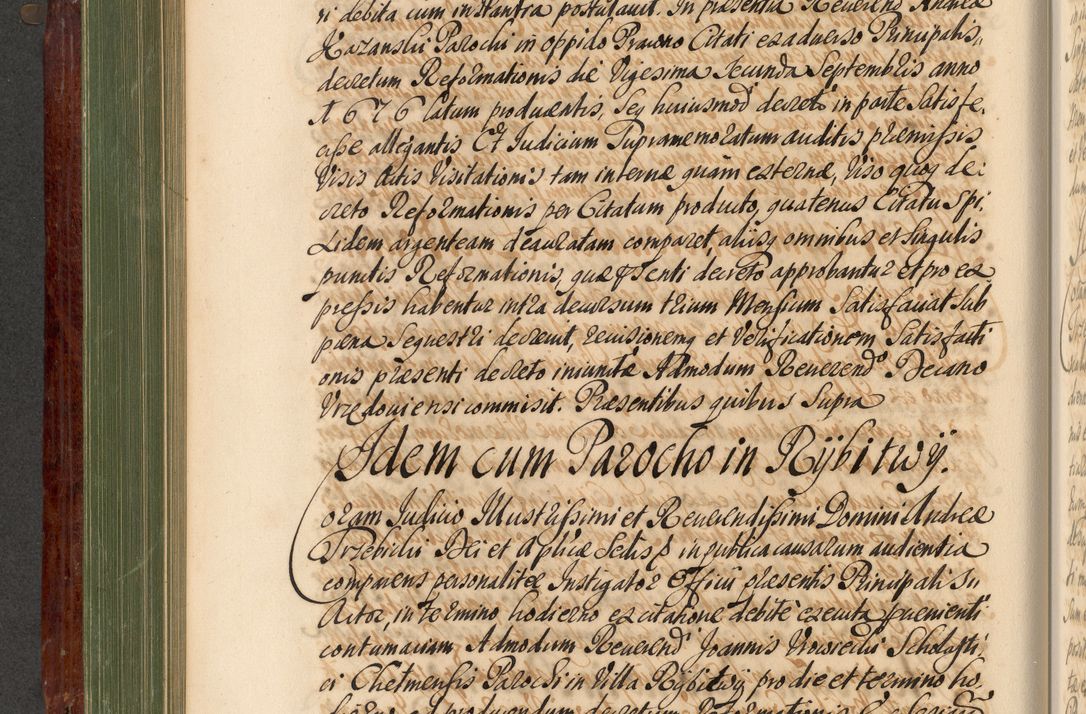 ri debita cum instantia postulavit. In præsentia Reverend Andreæ
Kazanskii Parochi in oppido Prawno Citati ex adverso Principalis,
decretum Reformationis die Vigesima Secunda Septembris anno
1676 latum producentis, Seq huiusmod decreto in parte Satisfe,
cisse allegantis Et Judicium Supramemoratum auditis præmissis
Visis Actis Visitationis tam internæ quam externæ, Viso quoq de:
creto Reformationis per Citatum producto, quatenus Citatus pi,
xidem argenteam deauratam comparet, aliisq omnibus et singulis
punctis Reformationis, quæ psenti decreto approbantur et pro ex
pressis habentur intra decursum trium Mensium Satisfaciat Sub
pæna Sequestri decrevit, revisionemq et Verificationem Satisfacti
onis præsenti decreto iniunctæ Admodum Reverendo Decano
Vrzedoviensi commisit. Præsentibus quibus Supra
Idem cum Parocho in Rÿbitwÿ.
Coram Judicio Illustrissimi et Reverendissimi Domini Andreæ
Trzebicki Dei et Aplicæ Sedis in publica causarum audientia
comparens personaliter Instigator Officii præsentis Principalis
Actor, in termino hodierno ex citatione debite executa pvenienti
contumaciam Admodum Reverend Joannis Scholasti
ci Chelmensis Parochi in Villa Rÿbitwÿ pro die et termino ho,
dierno ad producendum decretum Reformationis